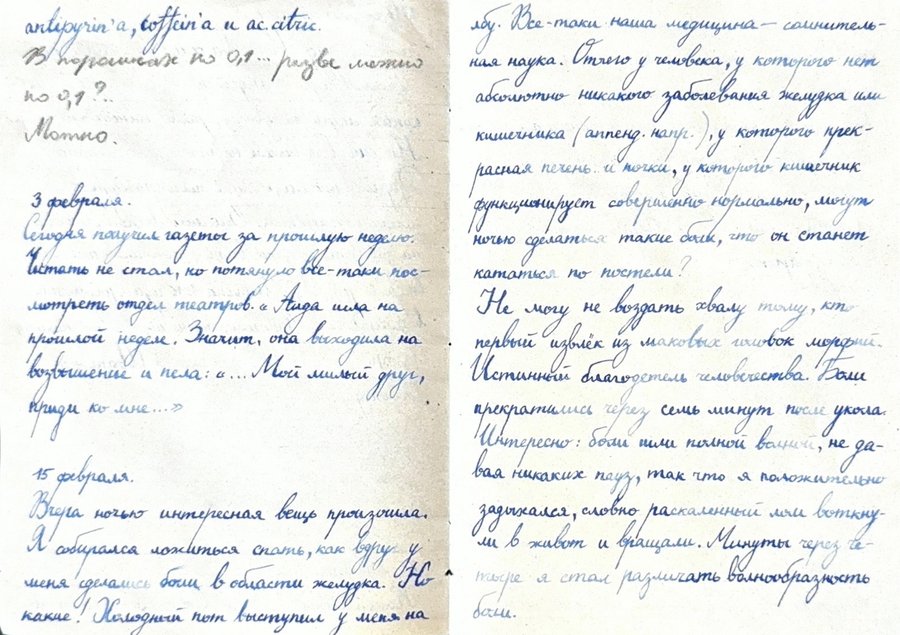 antipyrin'a, coffein'a и ac. citric.
В порошках по 0,1... разве можно
по 0,1?..
Можно.
3 февраля.
Сегодня получил газеты за прошлую неделю.
Читать не стал, но потянуло все-таки пос-
мотреть отдел театров. «Аида шла на
прошлой неделе. Значит, она выходила на
возвышение и пела: «... Мой милый друг,
приди ко мне...»
15 февраля.
Вчера ночью интересная вещь произошла.
Я собирался ложиться спать, как вдруг у
меня сделались боли в области желудка. Но
какие! Холодный пот выступил у меня на
лбу. Все-таки наша медицина — сомнитель-
ная наука. Отчего у человека, у которого нет
абсолютно никакого заболевания желудка или
кишечника (аппенд. напр.), у которого прек-
расная печень и почки, у которого кишечник
функционирует совершенно нормально, могут
ночью сделаться такие боли, что он станет
кататься по постели?
Не могу не воздать хвалу тому, кто
первый извлёк из маковых головок морфий.
Истинный благодетель человечества. Боли
прекратились через семь минут после укола.
Интересно: боли шли полной волной, не да-
вая никаких пауз, так что я положительно
задыхался, словно раскаленный лом воткну-
ли в живот и вращали. Минуты через че-
тыре я стал различать волнообразность
боли.